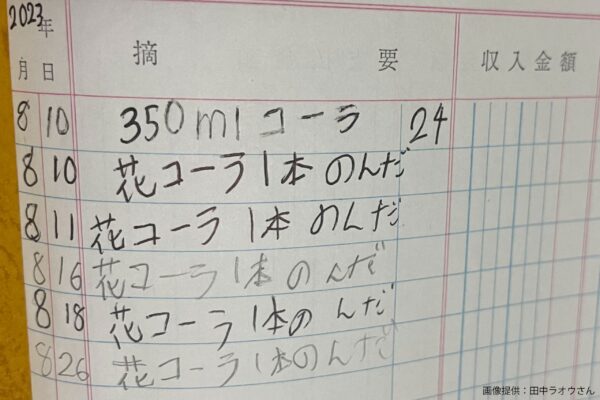 2023年
月 日 摘 要 収入金額
8 10 350ml コーラ 24
8 10 花コーラ1本のんだ
8 11 花コーラ1本のんだ
8 16 花コーラ1本のんだ
8 18 花コーラ1本のんだ
8 26 花コーラ1本のんだ
画像提供：田中ラオウさん